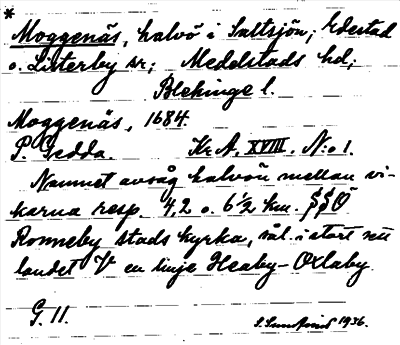 *
Moggenäs, halvö i Saltsjön, Edestad
o. Listerby sr; Medelstads hd;
Blekinge l.
Moggenäs, 1684.
P. Gedda. Kr A. XVIII. N:o 1.
Namnet avsåg halvön mellan vi-
karna resp. 4,2 o. 6 1/2 km. SSO
Ronneby stads kyrka, säl. i stort sett
landet V en linje Heaby-Oxlaby.
G. 11. 1936.